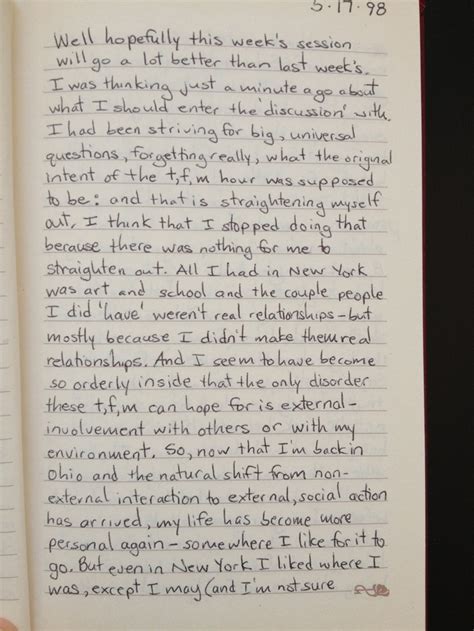 5-17-98
Well hopefully this week's session
will go a lot better than last week's.
I was thinking just a minute ago about
what I should enter the 'discussion' with.
I had been striving for big, universal
questions, forgetting really, what the original
intent of the t,f,m hour was supposed
to be: and that is straightening myself
out. I think that I stopped doing that
because there was nothing for me to
straighten out. All I had in New York
was art and school and the couple people
I did 'have' weren't real relationships - but
mostly because I didn't make them real
relationships. And I seem to have become
so orderly inside that the only disorder
these t,f,m can hope for is external-
involvement with others or with my
environment. So, now that I'm back in
Ohio and the natural shift from non-
external interaction to external, social action
has arrived, my life has become more
personal again - somewhere I like for it to
go. But even in New York I liked where I
was, except I may (and I'm not sure